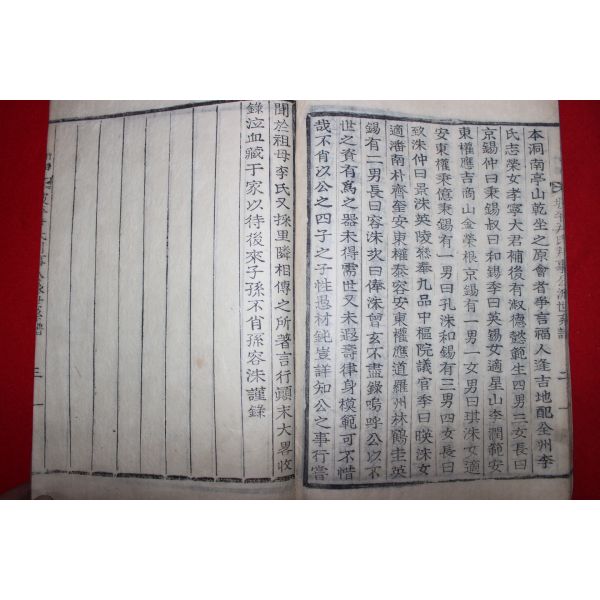 本洞南亭山乾坐之原會者爭言福人逢吉地配全州李
氏志榮女孝寧大君補後有淑德懿範生四男三女長曰
京錫仲曰秉錫叔曰和錫季曰英錫女適星山李潤範安
東權應吉商山金榮根京錫有一男一女男曰琪洙女適
安東權秉億秉錫有一男曰孔洙和錫有三男四女長曰
玟洙仲曰景洙英陵叅奉九品中樞院議官季曰暎洙女
適潘南朴齊奎安東權泰容安東權應道羅州林鶴圭英
錫有二男長曰容洙次曰俸洙曾玄不盡錄嗚呼公以不
世之資有爲之器未得需世又未遐壽律身模範可不惜
哉不肖以公之四子之子性愚材鈍豈詳知公之事行嘗
聞於祖母李氏又採里隣相傳之所著言行顚末大畧收
錄泣血藏于家以待後來子孫不肖孫容洙謹錄